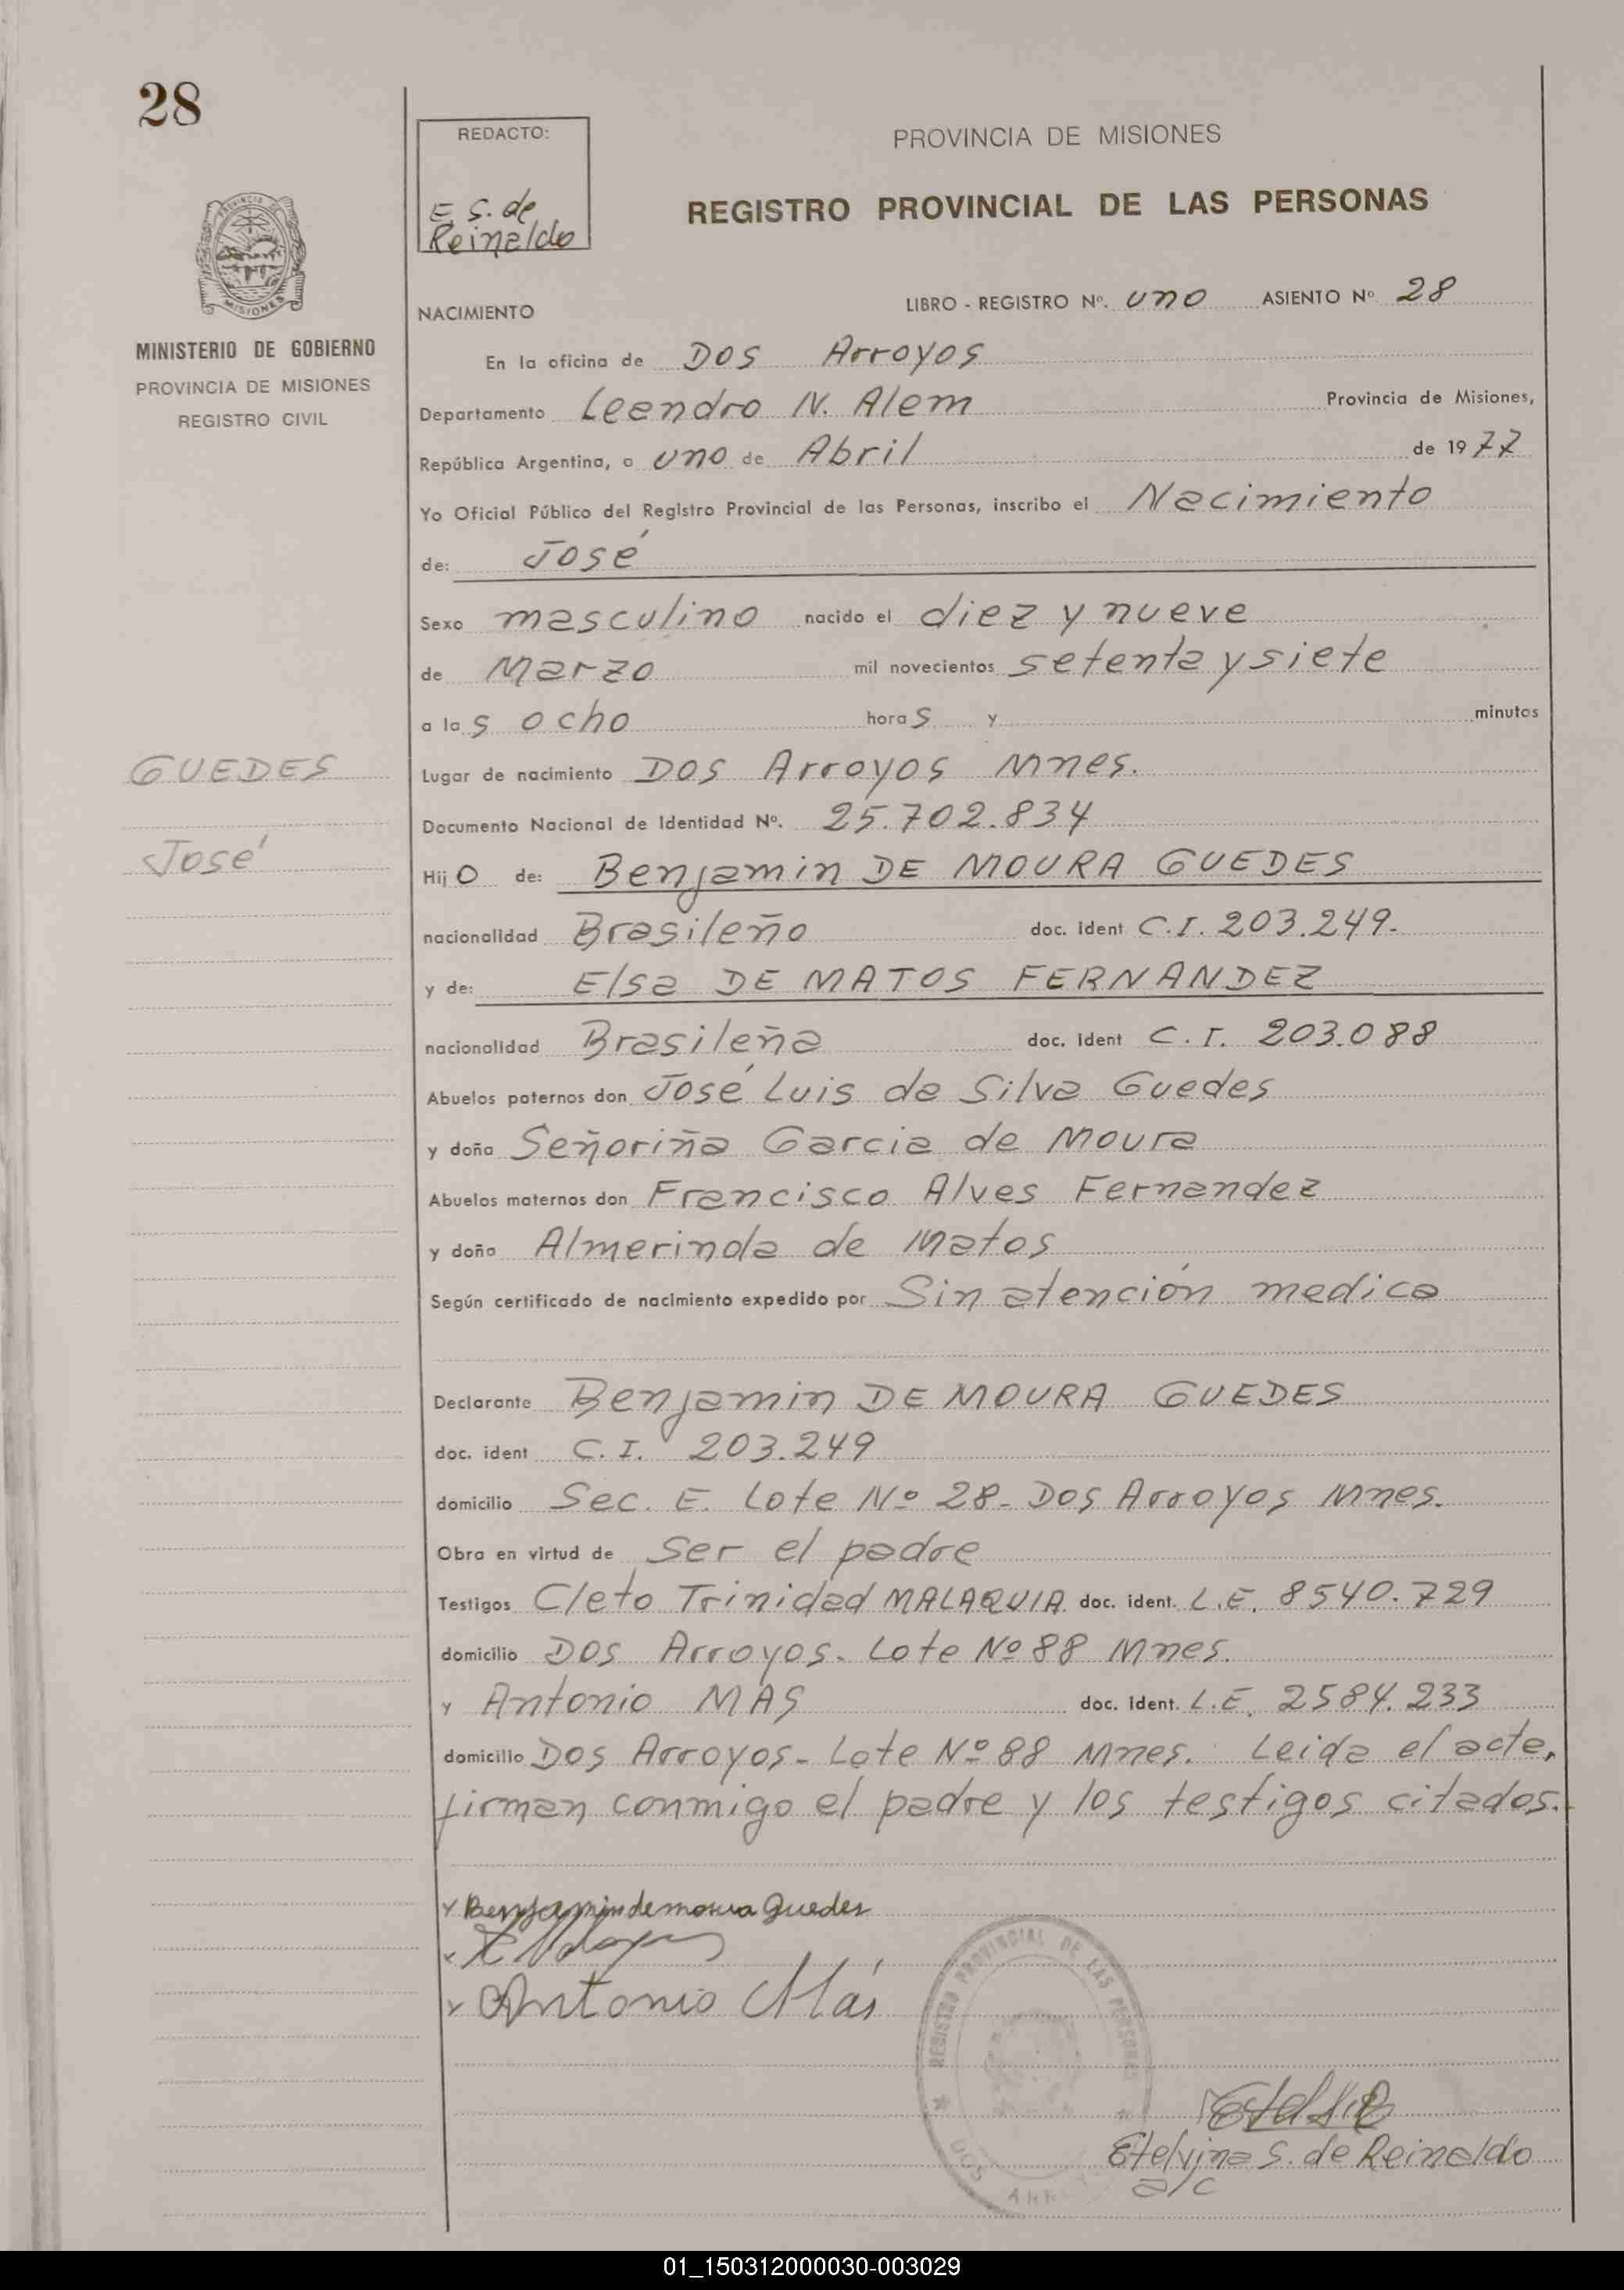 28
REDACTO:
E S. de
Reinaldo
PROVINCIA DE MISIONES
REGISTRO PROVINCIAL DE LAS PERSONAS
MISIONES
MINISTERIO DE GOBIERNO
PROVINCIA DE MISIONES
REGISTRO CIVIL
NACIMIENTO
LIBRO - REGISTRO Nº. uno ASIENTO Nº 28
En la oficina de Dos Arroyos
Departamento Leandro N. Alem Provincia de Misiones,
República Argentina, a uno de Abril de 1977
Yo Oficial Público del Registro Provincial de las Personas, inscribo el Nacimiento
de: José
Sexo masculino nacido el diez y nueve
de Marzo mil novecientos setenta y siete
a las ocho horas y minutos
GUEDES
José
Lugar de nacimiento Dos Arroyos Mnes.
Documento Nacional de Identidad Nº. 25.702.834
Hijo de: Benjamin DE MOURA GUEDES
nacionalidad Brasileño doc. ident C.I. 203.249.
y de: Elsa DE MATOS FERNANDEZ
nacionalidad Brasileña doc. ident C.I. 203.088
Abuelos paternos don José Luis da Silva Guedes
y doña Señoriña Garcia de Moura
Abuelos maternos don Francisco Alves Fernandez
y doña Almerinda de Matos
Según certificado de nacimiento expedido por Sin atención medica
Declarante Benjamin DE MOURA GUEDES
doc. ident C.I. 203.249
domicilio Sec. E. Lote Nº 28- Dos Arroyos Mnes.
Obra en virtud de ser el padre
Testigos Cleto Trinidad MALAQUIA doc. ident. L.E. 8540.729
domicilio Dos Arroyos. Lote Nº 88 Mnes.
y Antonio MAS doc. ident. L.E. 2584.233
domicilio Dos Arroyos- Lote Nº 88 Mnes. Leida el acta,
firman conmigo el padre y los testigos citados.
x Benjamin de moura Guedes
x Antonio Más
REGISTRO PROVINCIAL DE LAS PERSONAS
DOS
Etelvina S. de Reinaldo
a/c
01_150312000030-003029